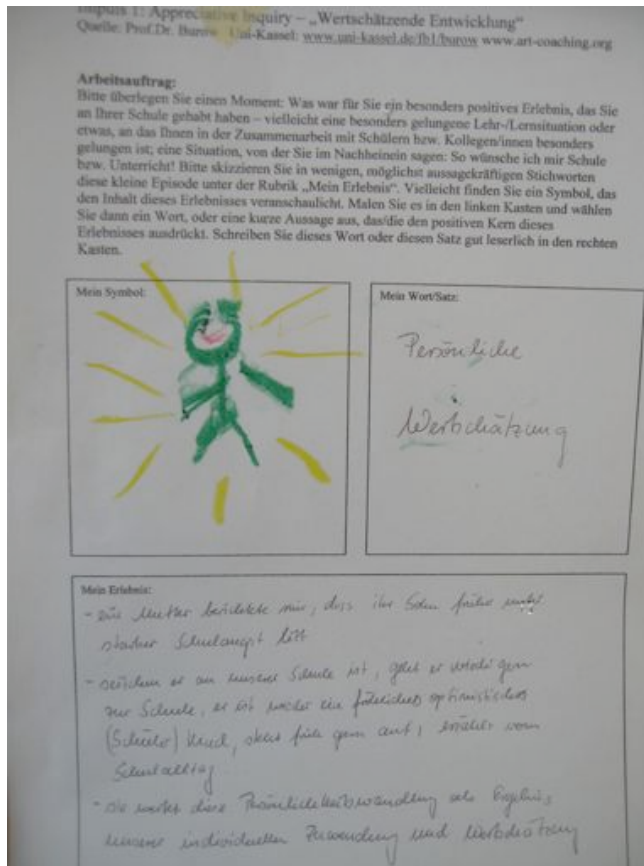 Impuls 1: Appreciative Inquiry – „Wertschätzende Entwicklung“
Quelle: Prof.Dr. Burow Uni-Kassel: www.uni-kassel.de/fb1/burow www.art-coaching.org
Arbeitsauftrag:
Bitte überlegen Sie einen Moment: Was war für Sie ein besonders positives Erlebnis, das Sie
an Ihrer Schule gehabt haben – vielleicht eine besonders gelungene Lehr-/Lernsituation oder
etwas, an das Ihnen in der Zusammenarbeit mit Schülern bzw. Kollegen/innen besonders
gelungen ist; eine Situation, von der Sie im Nachheinein sagen: So wünsche ich mir Schule
bzw. Unterricht! Bitte skizzieren Sie in wenigen, möglichst aussagekräftigen Stichworten
diese kleine Episode unter der Rubrik „Mein Erlebnis“. Vielleicht finden Sie ein Symbol, das
den Inhalt dieses Erlebnisses veranschaulicht. Malen Sie es in den linken Kasten und wählen
Sie dann ein Wort, oder eine kurze Aussage aus, das/die den positiven Kern dieses
Erlebnisses ausdrückt. Schreiben Sie dieses Wort oder diesen Satz gut leserlich in den rechten
Kasten.
Mein Symbol:
Mein Wort/Satz:
Persönliche
Wertschätzung
Mein Erlebnis:
- eine Mutter berichtete mir, dass ihr Sohn früher unter
starker Schulangst litt
- seitdem er an unserer Schule ist, geht er wieder gern
zur Schule, er ist wieder ein fröhliches optimistisches
(Schüler) Kind, steht früh gern auf, erzählt vom
Schulalltag
- sie wertet diese Persönlichkeitswandlung als Ergebnis
unserer individuellen Zuwendung und Wertschätzung